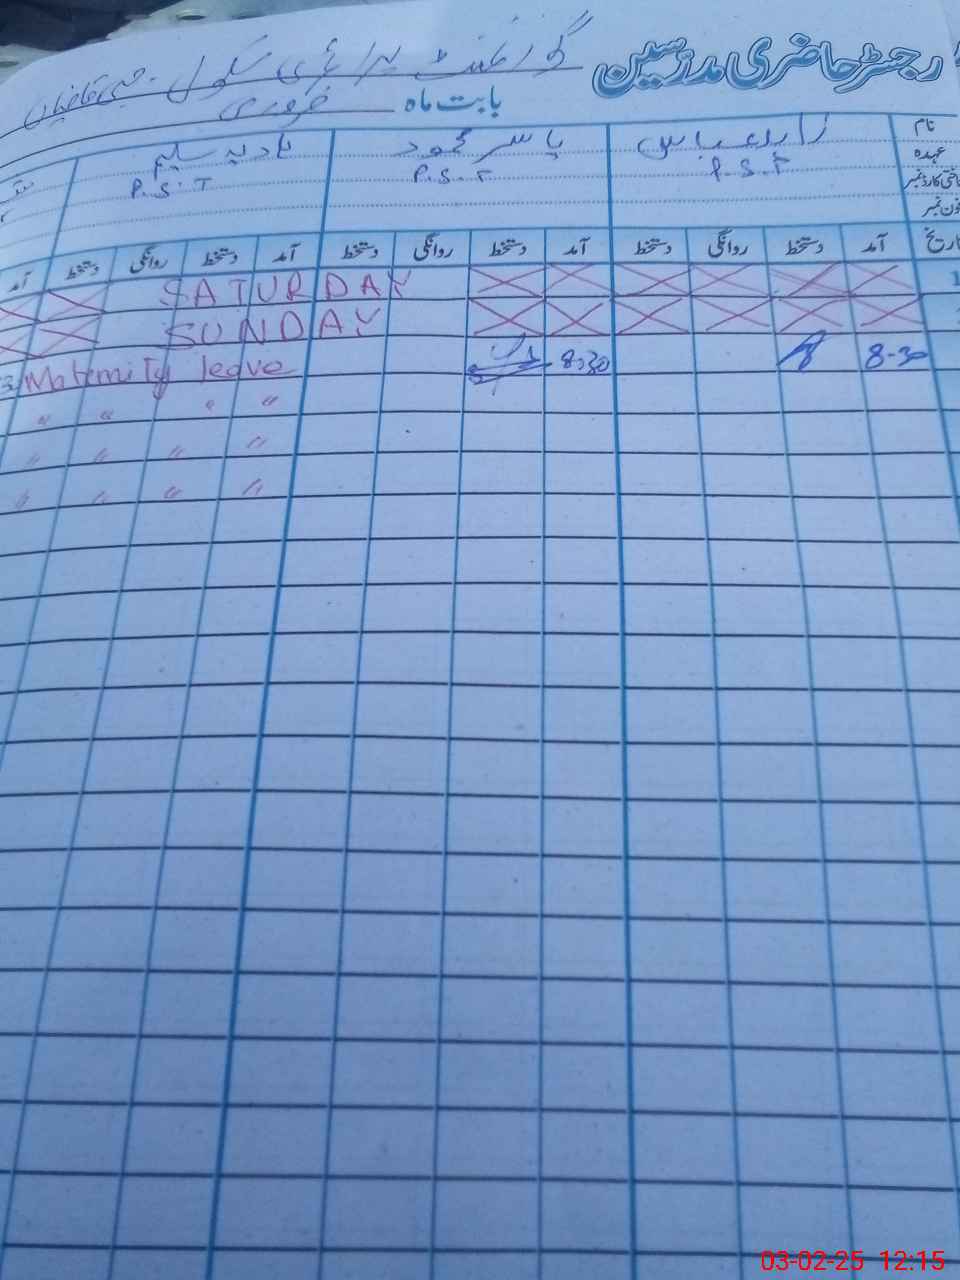 رجسٹر حاضری مدرسین گورنمنٹ پرائمری سکول
بابت ماہ فروری
نام زاہد عباس یاسر محمود نادیہ سلیم
عہدہ P.S.T P.S.T P.S.T
شناختی کارڈ نمبر
فون نمبر
تاریخ آمد دستخط روانگی دستخط آمد دستخط روانگی دستخط آمد دستخط روانگی دستخط آمد
1 SATURDAY
SUNDAY
8-30 8:30 3 Maternity leave
" " " "
" " " "
" " " "
03-02-25 12:15